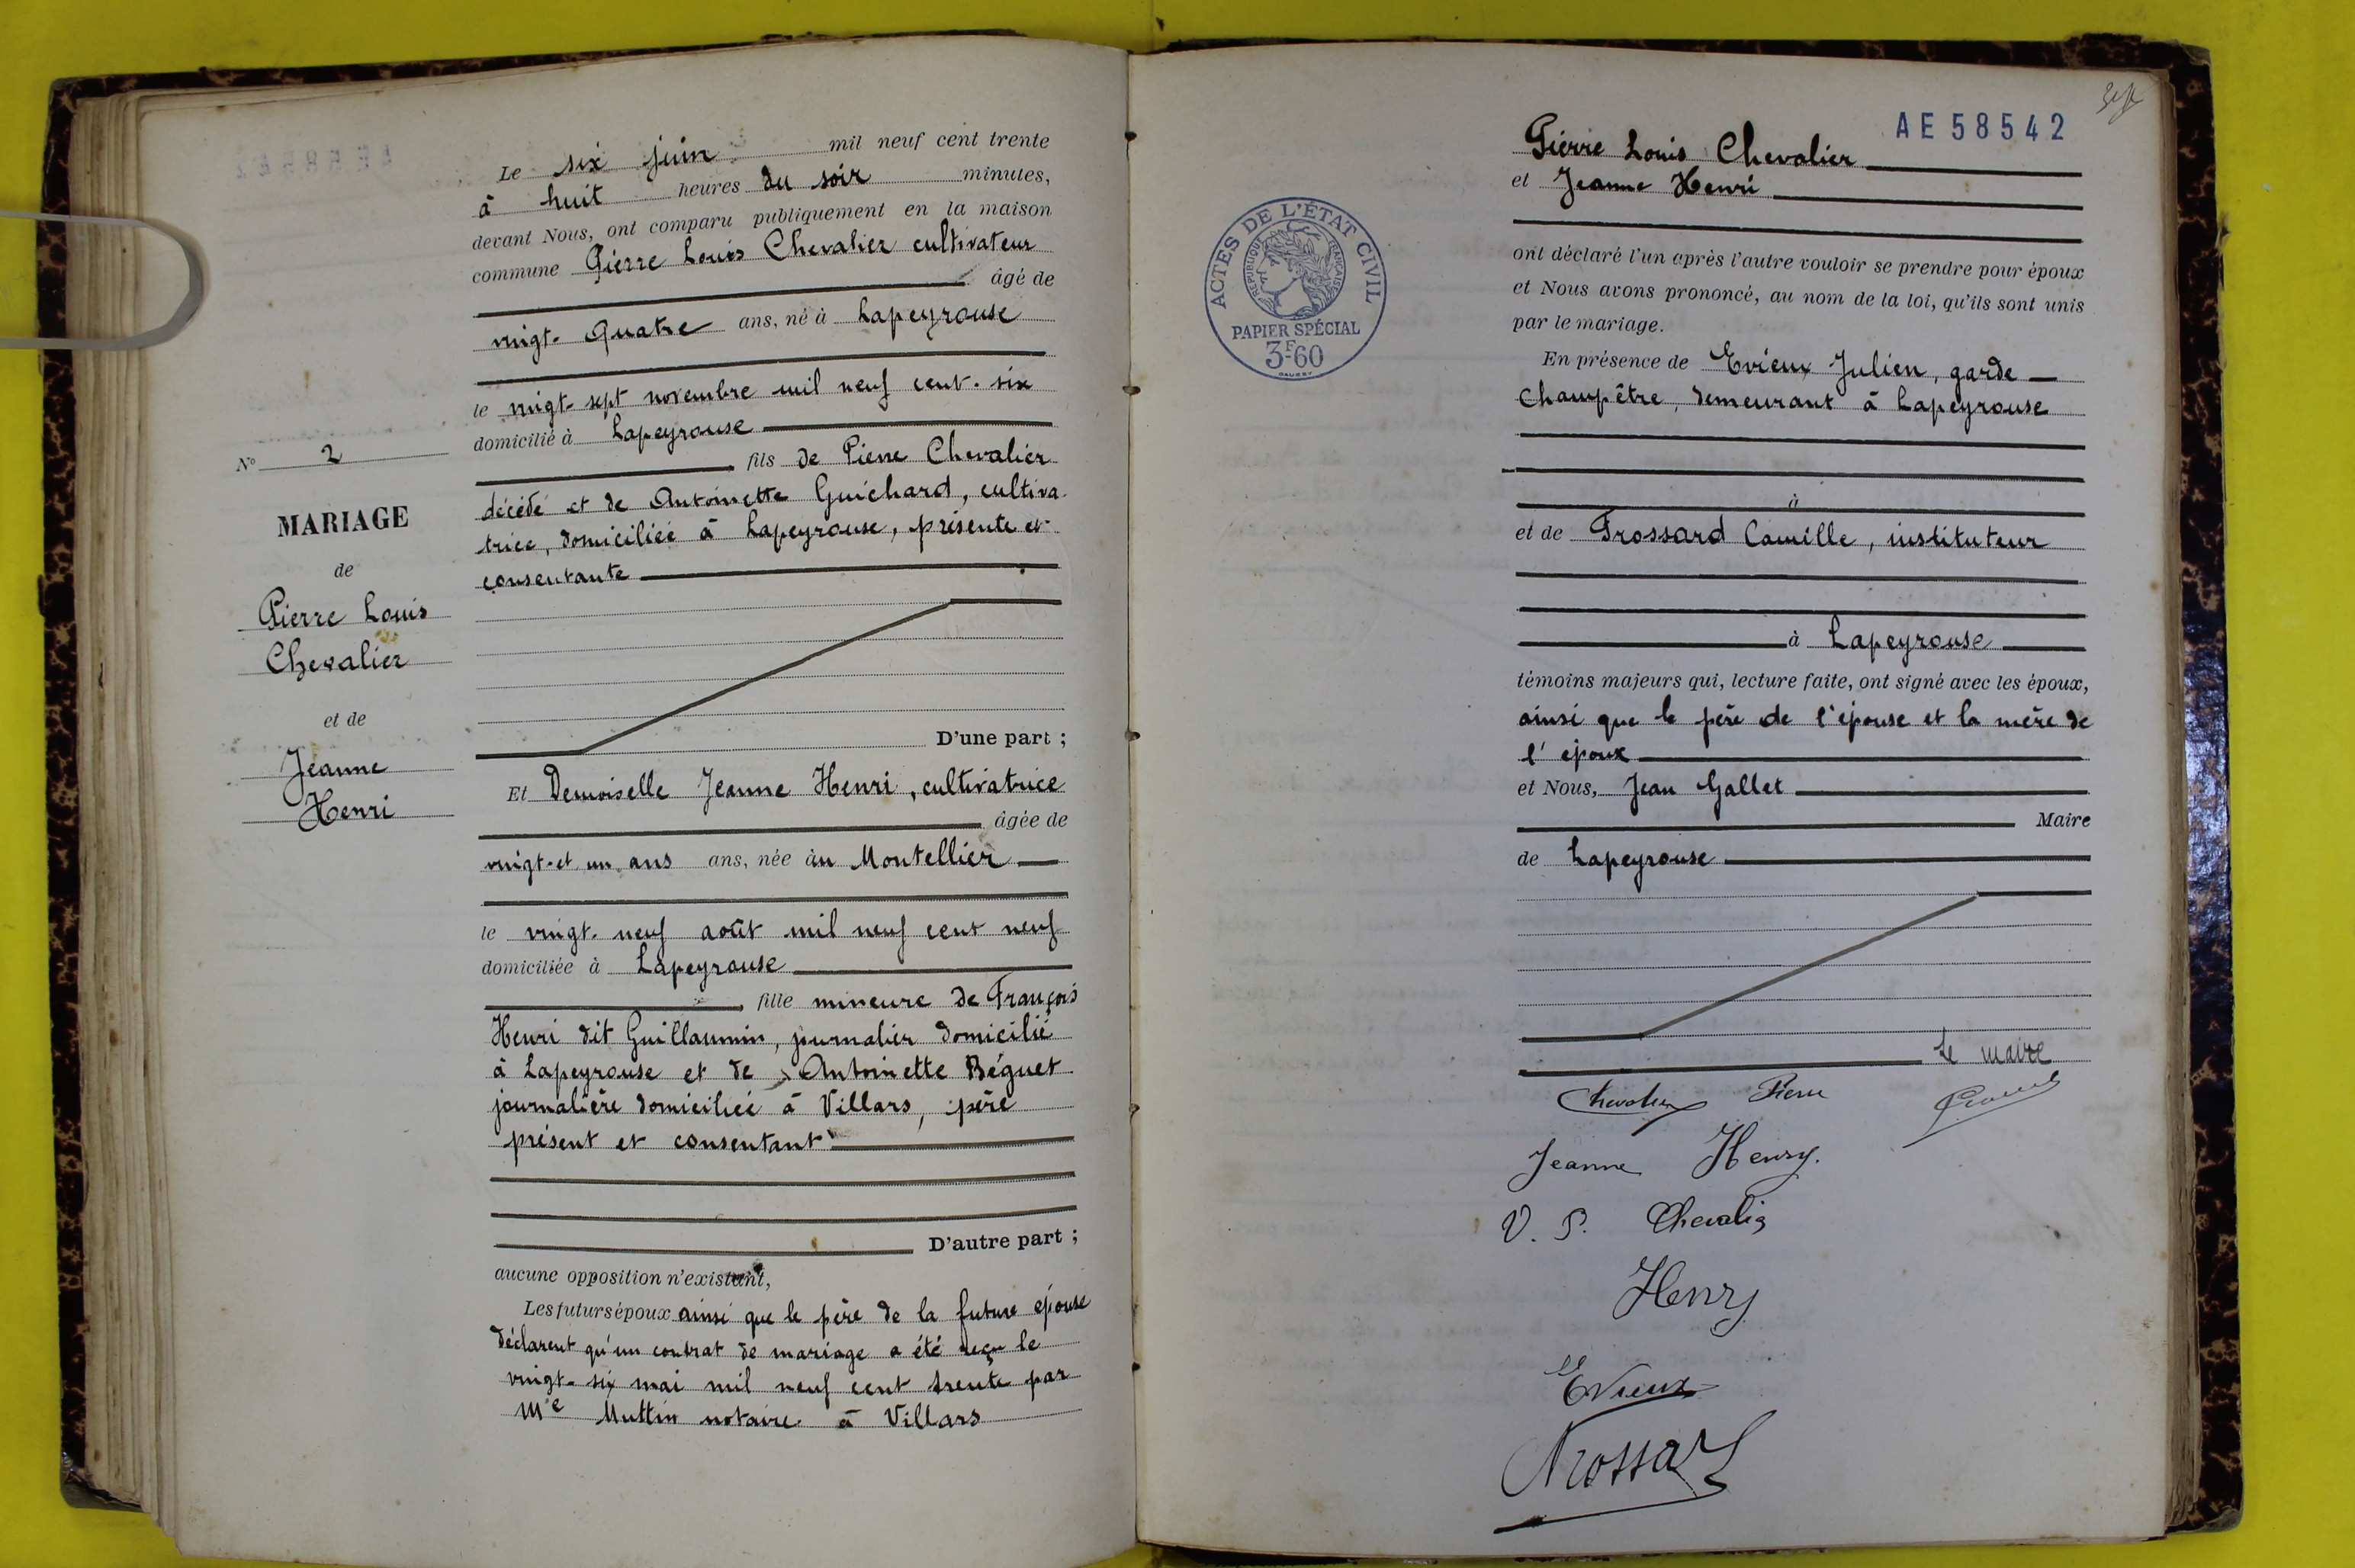 Le six juin mil neuf cent trente
à huit heures du soir minutes,
devant Nous, ont comparu publiquement en la maison
commune Pierre Louis Chevalier cultivateur
âgé de
vingt-quatre ans, né à Lapeyrouse
le vingt-sept novembre mil neuf cent-six
domicilié à Lapeyrouse
fils de Pierre Chevalier
décédé et de Antoinette Guichard, cultiva-
trice, domiciliée à Lapeyrouse, présente et
consentante
D'une part ;
Et Demoiselle Jeanne Henri, cultivatrice
âgée de
vingt-et un ans ans, née au Montellier
le vingt-neuf août mil neuf cent neuf
domiciliée à Lapeyrouse
fille mineure de François
Henri dit Guillaumin, journalier domicilié
à Lapeyrouse et de Antoinette Béguet
journalière domiciliée à Villars, père
présent et consentant
D'autre part ;
aucune opposition n'existant,
Les futurs époux ainsi que le père de la future épouse
déclarent qu'un contrat de mariage a été reçu le
vingt-six mai mil neuf cent trente par
Me Muttin notaire à Villars
N° 2
MARIAGE
de
Pierre Louis
Chevalier
et de
Jeanne
Henri
AE 58542
Pierre Louis Chevalier
et Jeanne Henri
ont déclaré l'un après l'autre vouloir se prendre pour époux
et Nous avons prononcé, au nom de la loi, qu'ils sont unis
par le mariage.
En présence de Evieux Julien, garde
Champêtre, demeurant à Lapeyrouse
à
et de Frossard Camille, instituteur
à Lapeyrouse
témoins majeurs qui, lecture faite, ont signé avec les époux,
ainsi que le père de l'épouse et la mère de
l'époux
et Nous, Jean Gallet
Maire
de Lapeyrouse
Le maire
Chevalier Pierre
Jeanne Henry.
V. P. Chevalier
Henry
Evieux
Frossard
ACTES DE L'ÉTAT CIVIL
RÉPUBLIQUE FRANÇAISE
PAPIER SPÉCIAL
3F60